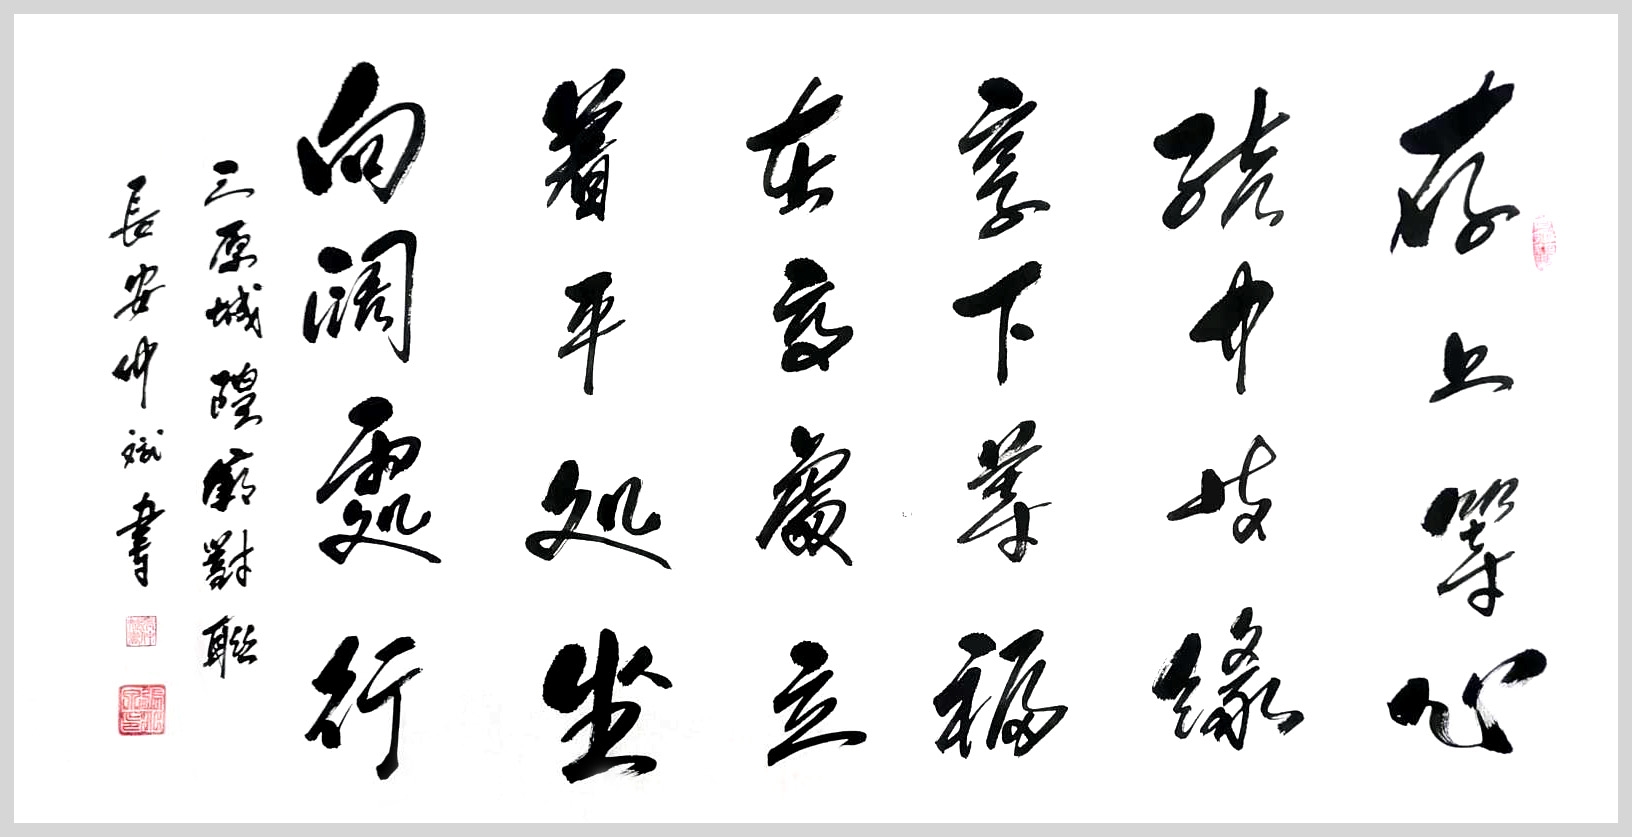 存上等心
結中等緣
享下等福
在高處立
着平处坐
向闊處行
三原城隍廟對聯
長安仲斌書